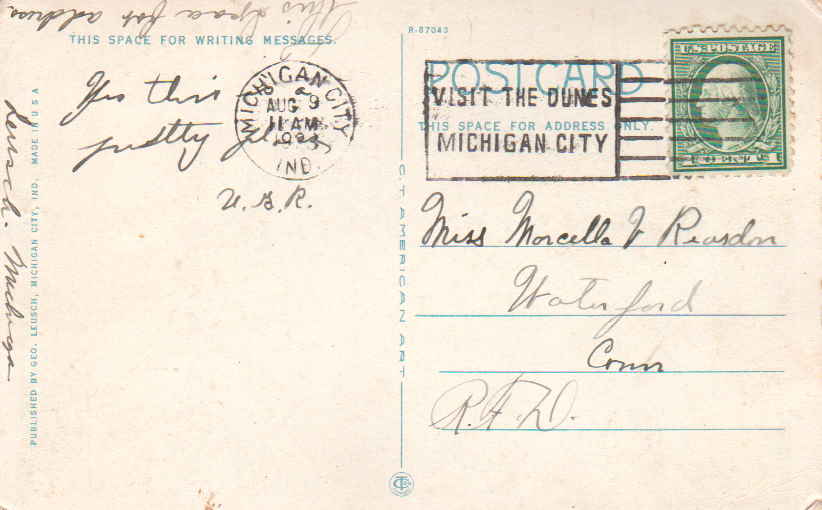 This Space for address
R-87043
THIS SPACE FOR WRITING MESSAGES.
Yes this
pretty
U. G. R.
MICHIGAN CITY
AUG 9
11 AM
IND.
POST CARD
VISIT THE DUNES
MICHIGAN CITY
THIS SPACE FOR ADDRESS ONLY.
U.S. POSTAGE
Miss Morcella V Reardon
Waterford
Conn
R.F.D.
C.T. AMERICAN ART
PUBLISHED BY GEO. LEUSCH, MICHIGAN CITY, IND. MADE IN U S A
Leusch. Michigan